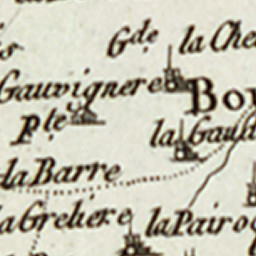 Gde. la Che
Gauvignere
Bou
Pte.
la Gaud
la Barre
la Greliere la Pairo